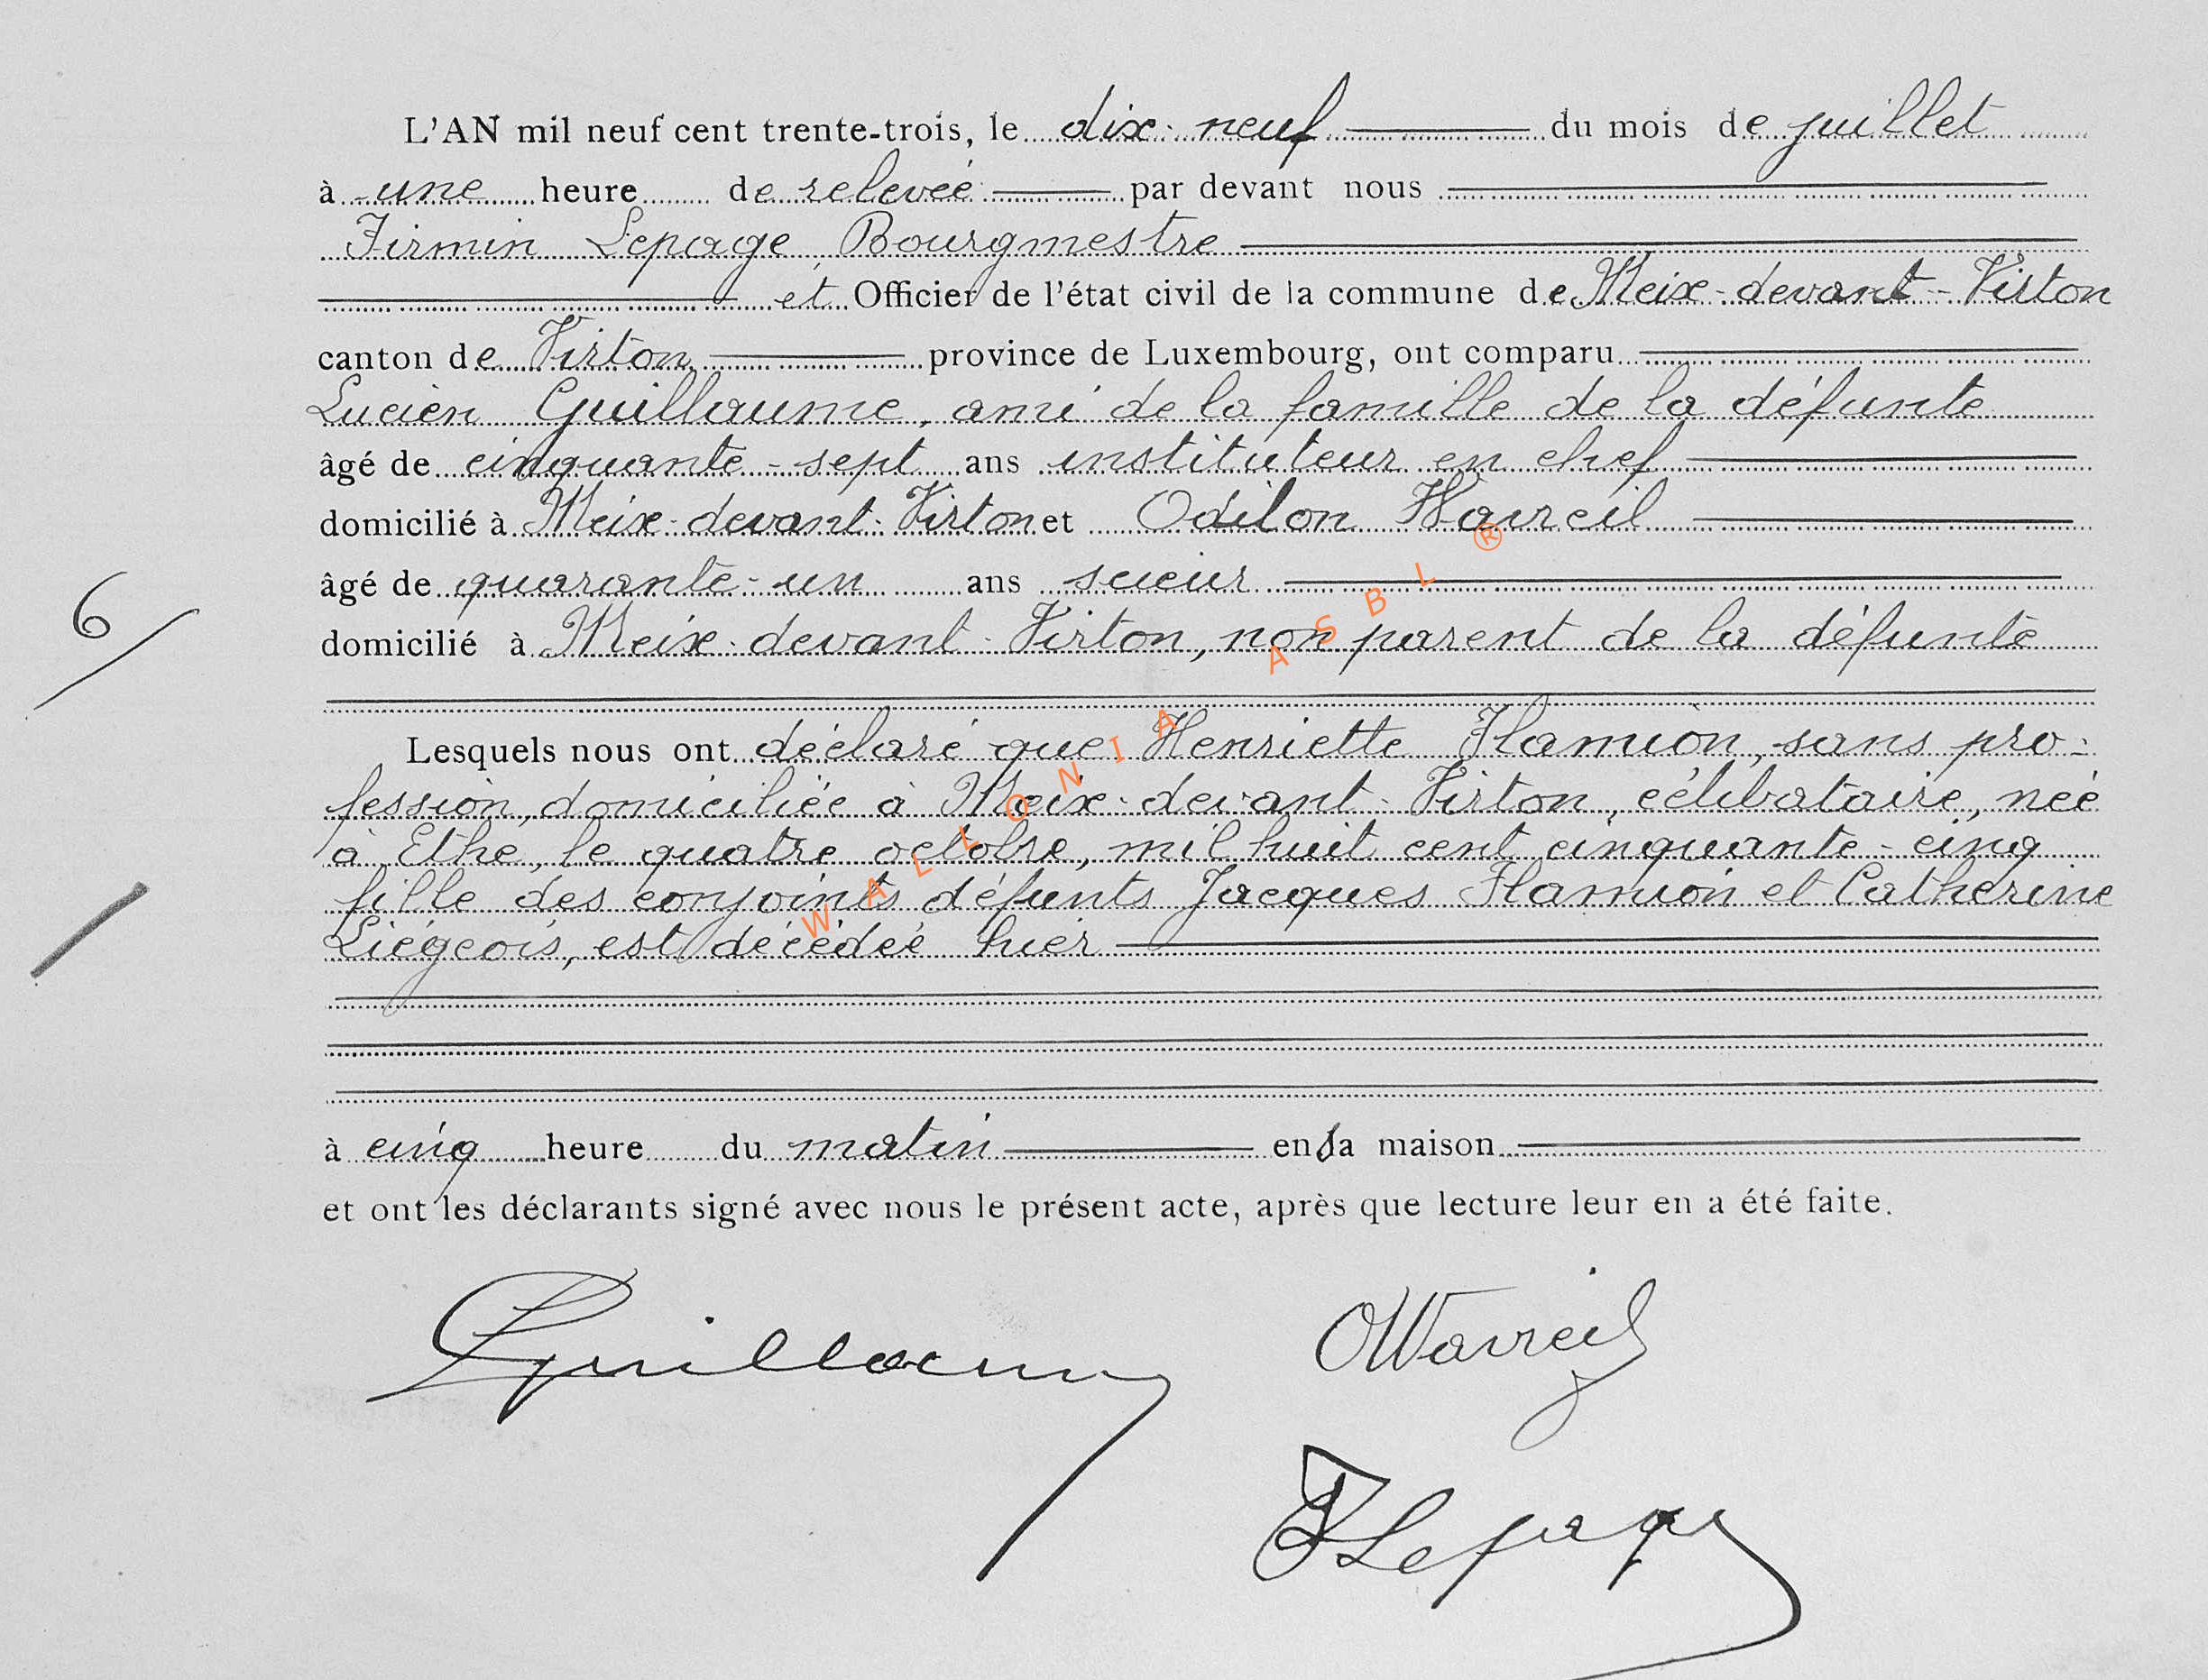 L'AN mil neuf cent trente-trois, le dix-neuf du mois de juillet
à une heure de relevée par devant nous
Firmin Lepage, Bourgmestre
et Officier de l'état civil de la commune de Meix-devant-Virton
canton de Virton province de Luxembourg, ont comparu
Lucien Guillaume, ami de la famille de la défunte
âgé de cinquante-sept ans instituteur en chef
domicilié à Meix-devant-Virton et Odilon Wavreil
âgé de quarante-un ans scieur
domicilié à Meix-devant-Virton, non parent de la défunte
6
Lesquels nous ont déclaré que Henriette Flamion, sans pro-
fession, domiciliée à Meix-devant-Virton, célibataire, née
à Ethe, le quatre octobre, mil huit cent cinquante-cinq
fille des conjoints défunts Jacques Flamion et Catherine
Liégeois, est décédée hier
à cinq heure du matin en sa maison
et ont les déclarants signé avec nous le présent acte, après que lecture leur en a été faite.
LGuillaume
OWavreil
FLepage
WALLONIA ASBL ®